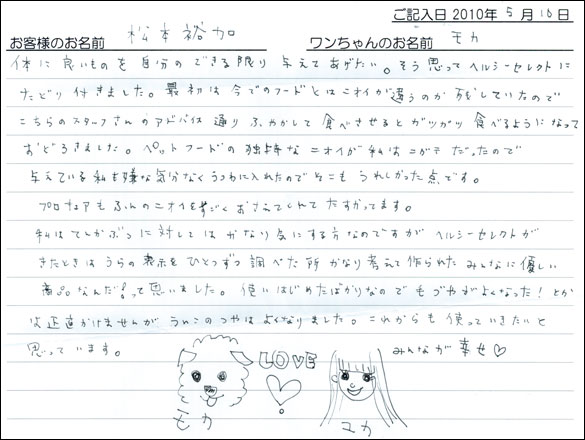 ご記入日 2010年 5月 16日
お客様のお名前 松本裕加 ワンちゃんのお名前 モカ
体に良いものを自分のできる限り与えてあげたい。そう思ってヘルシーセレクトに
たどり付きました。最初は今でのフードとはニオイが違うのか残していたので
こちらのスタッフさんのアドバイス通りふやかして食べさせるとガツガツ食べるようになって
おどろきました。ペットフードの独特なニオイが私はニガテだったので
与えている私も嫌な気分なくうつわに入れたのでそこもうれしかった点です。
プロキュアもふんのニオイをすごくおさえてくれてたすかってます。
私はてんかぶつに対してはかなり気にする方なのですがヘルシーセレクトが
きたときはうらの表示をひとつずつ調べた所かなり考えて作られたみんなに優しい
商品なんだ!って思いました。使いはじめたばかりなのでもづやがよくなった!とか
は正直かけませんがうんこのつやはよくなりました。これからも使っていきたいと
思っています。
みんなが幸せ♡
LOVE
モカ
ユカ